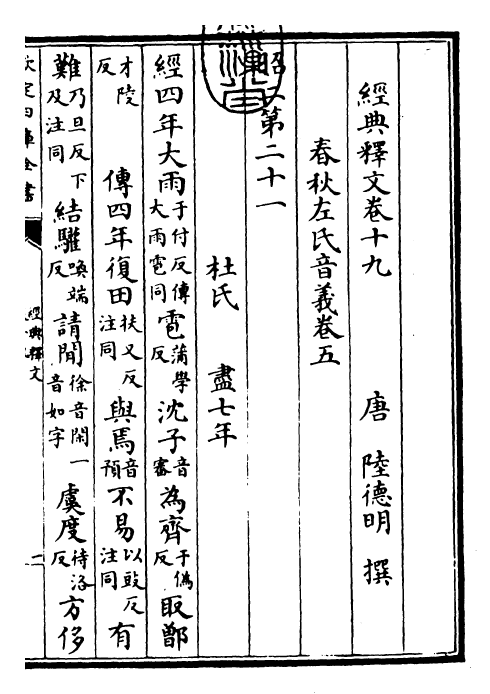 經典釋文卷十九　唐　陸德明　撰
春秋左氏音義卷五
昭二第二十一
杜氏　盡七年
經四年大雨于付反傳大雨雹同雹蒲學反沈子音審為齊于偽反取鄫
才陵反傳四年復田扶又反注同與焉音預不易以豉反注同有
難乃旦反下及注同結驩喚端反請閒徐音閑一音如字虞度待洛反方侈
欽定四庫全書
經典釋文